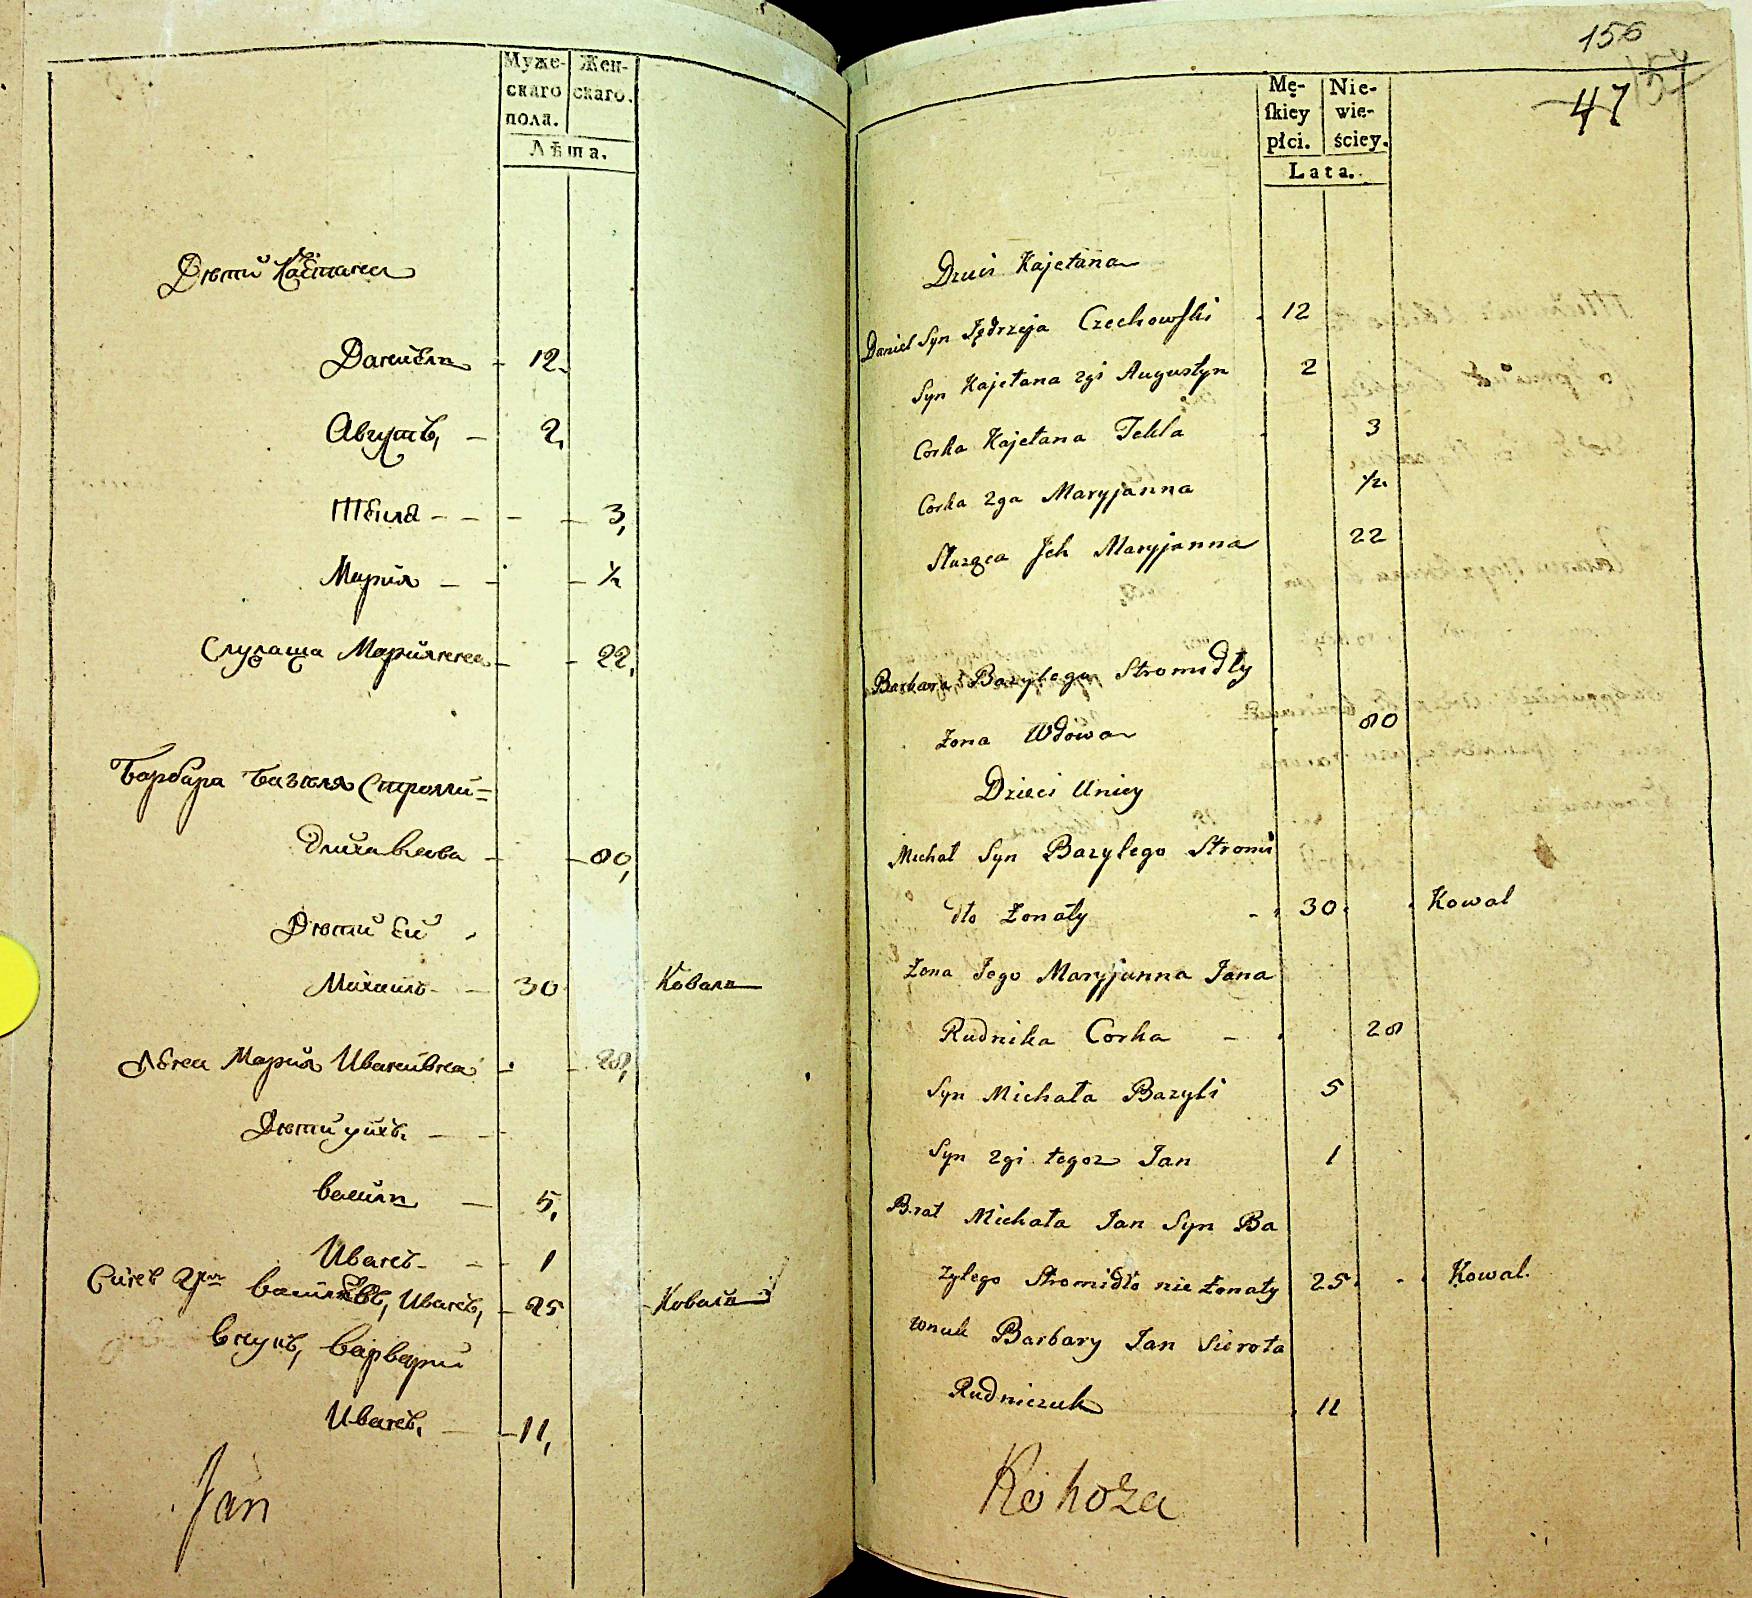 Муже-
скаго
пола.
Жен-
скаго.
Лѣта.
Дѣти Каетана
Даніель - 12.
Августъ, - 2,
Текла - - - - 3,
Марія - - - ½
Служаща Маріянна - - 22,
Барбара Базиля Строми=
длиха вдова - - 80,
Дѣти Ей
Михаилъ - - 30 Коваль
Жена Марія Иванивна - - 28,
Дѣти ихъ - -
Василь - 5,
Иванъ - - 1
Сынъ 2й Василіевъ, Иванъ, - 25 - Коваль
Внукъ, Варвары
Иванъ, - 11,
Jan
156
157
47
Mę-
skiey
płci.
Nie-
wie-
ściey.
Lata.
Dzieci Kajetana
Daniel Syn Jędrzeja Czechowski 12
Syn Kajetana 2gi Augustyn 2
Corka Kajetana Tekla 3
Corka 2ga Maryjanna ½
Służąca Ich Maryjanna 22
Barbara Bazylego Stromidły
Żona Wdowa 80
Dzieci Uniey
Michał Syn Bazylego Stromi
dło Żonaty - 30 Kowal
Żona Jego Maryjanna Jana
Rudnika Corka - 28
Syn Michała Bazyli 5
Syn 2gi tegoz Jan 1
Brat Michała Jan Syn Ba
zylego Stromidło nie żonaty 25 Kowal.
Wnuk Barbary Jan Sierota
Rudniczuk 11
Rohoża